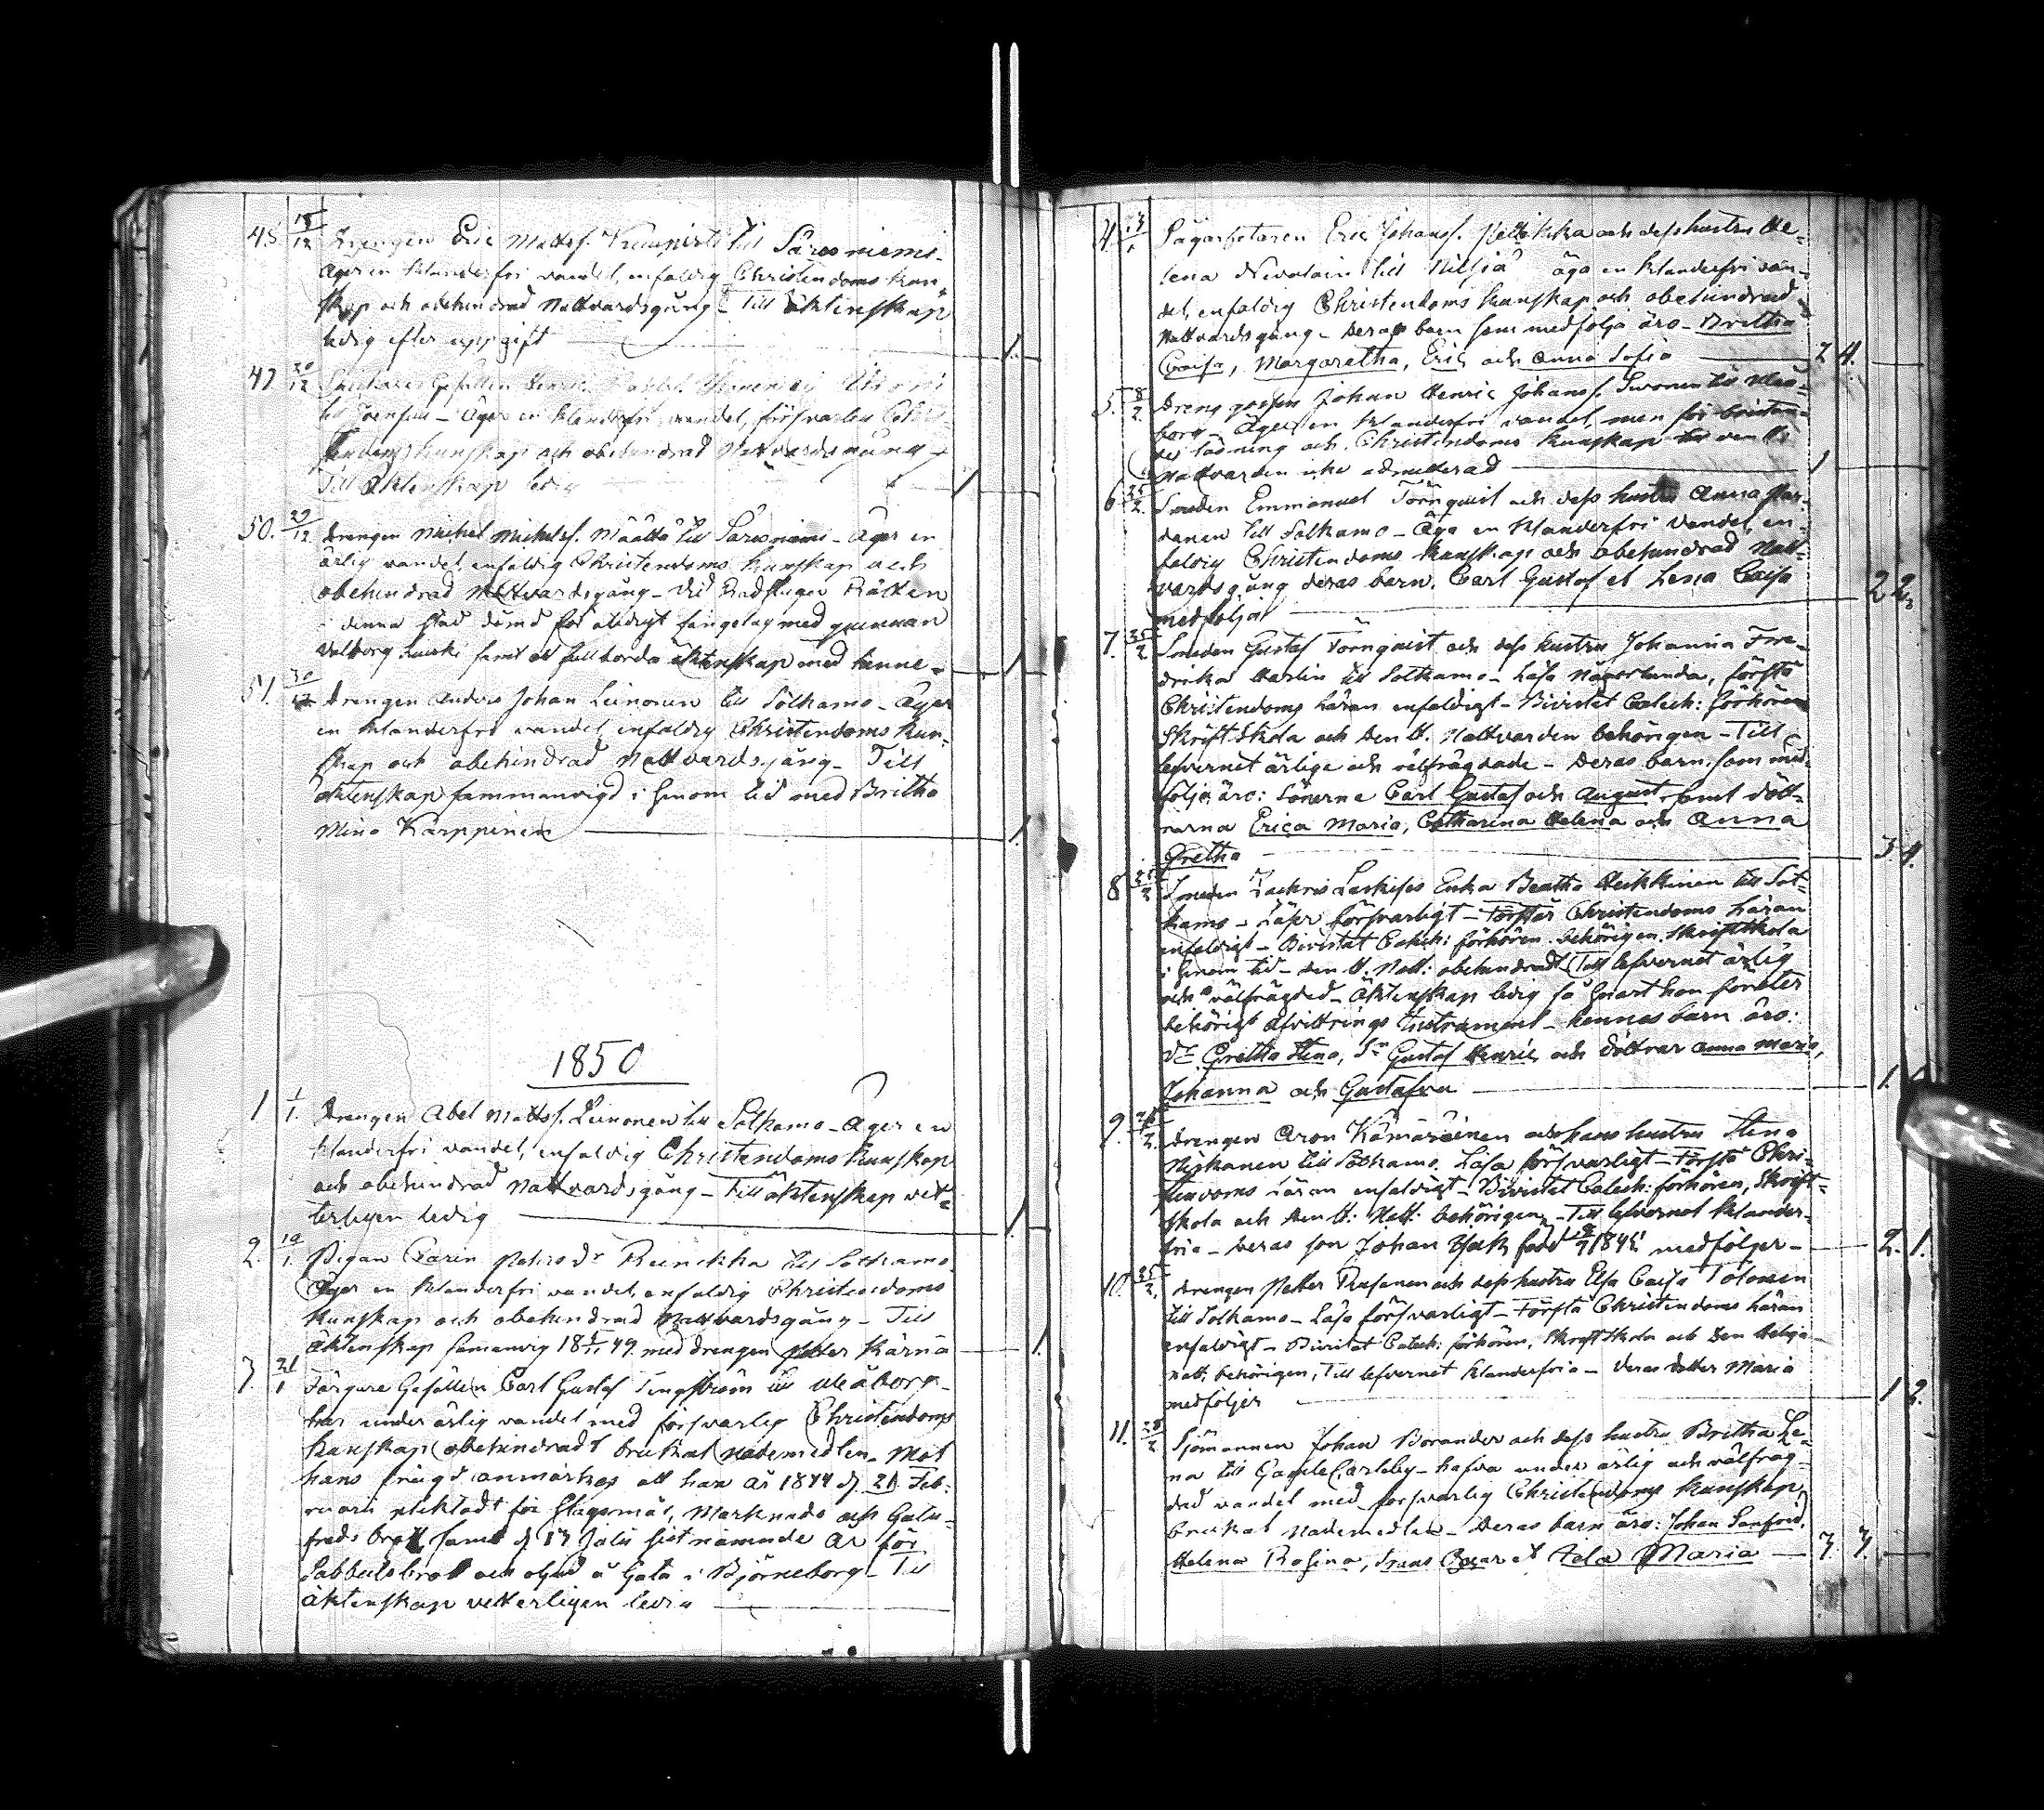 48. 18/12 Drengen Eric Mattss. till Säresniemi -
Äger en klanderfri vandel, enfaldig Christendoms kun-
skap och obehindrad Nattvardsgång - Till äktenskap
ledig efter uppgift 1.
49 20/12 Gesällen Henric
till Joensuu - Äger en klanderfri vandel, försvarlig
kunskap och obehindrad Nattvardsgång -
Till Äktenskap ledig 1
50. 29/12 Drengen Michel Michelss. Määttä till Säresniemi - Äger en
ärlig vandel, enfaldig Christendoms kunskap och
obehindrad Nattvardsgång - Vid Rådstugu Rätten
i denna stad dömd för olidigt sängelag med qvinnan
Valborg samt att fullborda äktenskap med henne - 1
51. 30/12 Drengen Anders Johan Leinonen till Sotkamo - Äger
en klanderfri vandel, enfaldig Christendoms kun-
skap och obehindrad Nattvardsgång - Till
äktenskap sammanvigd i sinom tid med Britha
Mina Karppinen 1.
1850
1 1/1. Drengen Abel Mattss. Leinonen till Sotkamo - Äger en
klanderfri vandel, enfaldig Christendoms kunskap
och obehindrad Nattvardsgång - Till äktenskap vet-
terligen ledig 1
2. 10/1 Pigan Carin Petersdr till Sotkamo.
Äger en klanderfri vandel, enfaldig Christendoms
kunskap och obehindrad Nattvardsgång - Till
äktenskap samanvig 49. med drengen Petter Kärnä 1.
3. 21/1 Färgare Gesällen Carl Gustaf Tengström till Uleåborg -
har under ärlig vandel med försvarlig Christendoms
kunskap obehindradt brukat nådemedlen. Mot
hans frägd anmärkes att han år 1844 d. 21 Feb-
ruarii pliktadt för Slagsmål, Marknads och Gatu-
freds brott samt d 17 Julii sist nämnde år för
Sabbatsbrott och oljud å Gata i Björneborg - Till
äktenskap vetterligen ledig
4. 23/1 Sågarbetaren Eric Johanss. och dess hustru He-
lena Nevalain till Nilsiä äga en klanderfri van-
del, enfaldig Christendoms kunskap och obehindrad
Nattvardsgång - Deras barn som medfölja äro - Britha
Caisa, Margaretha, Eric och Anna Sofia 2 4.
5. 8/2 Dreng gossen Johan Henric Johanss. Suvonen till Uleå-
borg - Äger en klanderfri vandel, men för bristan-
de läsning och Christendoms kunskap till den H.
Nattvarden icke admitterad 1
6 25/2. Smeden Emmanuel Törnquist och dess hustru Anna Par-
danen till Sotkamo - Äga en klanderfri vandel, en-
faldig Christendoms kunskap och obehindrad Natt-
vardsgång deras barn. Carl Gustaf et Lena Caisa
medfölja 2 2.
7. 25/2 Smeden Gustaf Törnquist och dess hustru Johanna Fre-
drika Harlin till Sotkamo - Läsa någorlunda, förstå
Christendoms Läran enfaldigt - Bivistat Catech: förhören
Skrift Skola och den H. Nattvarden behörigen - Till
lefvernet ärlige och välfrägdade - Deras barn, som med-
följa äro: Sönerne Carl Gustaf och August, samt Dött-
rarna Erica Maria, Catharina Helena och Anna
Gretha 3. 4.
8 25/2 Smeden Zachris Laskises Enka Beatha Heikkinen till Sot-
kamo - Läser försvarligt - Förstår Christendoms Läran
enfaldigt - Bivistat Catech: förhören behörigen Skriftskola
i sinom tid - den H. Natt: obehindradt Till lefvernet ärlig
och välfrägdad - Äktenskap ledig så snart hon företer
behörigt Afvittrings Instrument - hennes barn äro:
Dr Gretha Stina, Sn Gustaf Henric och döttrar Anna Maria,
Johanna och Gustafva 1.
9. Drengen Aron Kämäräinen och hans hustru Stena
Niskanen till Sotkamo. Läsa försvarligt - Förstå Chri-
stendoms Läran enfaldigt - Bivistat Catech: förhören, Skrift-
skola och den H: Natt: behörigen - Till lefvernet klander-
fria - Deras son Johan född medföljer - 2. 1.
10. 25/2. Drengen Petter och dess hustru Elsa Caisa Tolonen
till Sotkamo - Läsa försvarligt - Förstå Christendoms Läran
enfaldigt - Bivistat Catech: förhören, Skriftskola och den Helga
natt: behörigen, till lefvernet klanderfria - Deras dotter Maria
medföljer 1 2.
11. 28/2 Sjömannen Johan Borander och dess hustru Britha Le-
na till Gamle Carleby - hafva under ärlig och välfräg-
dad vandel med försvarlig Christendoms kunskap
brukat nådemedlen - Deras barn äro: Johan Sanfrid,
Helena Rosina, Frans Oscar et Ada Maria 3. 3.